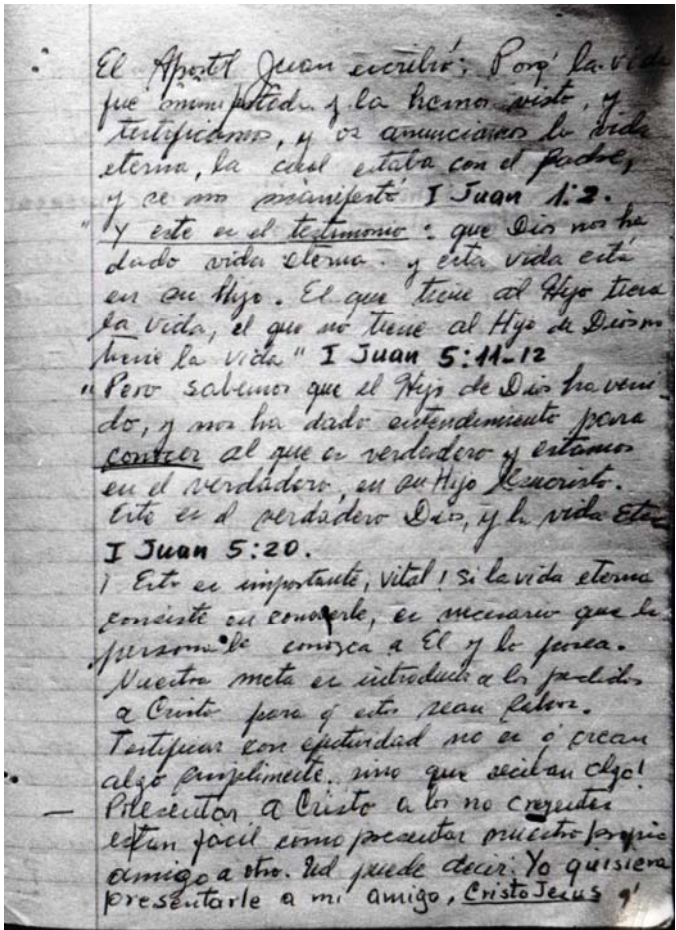 El Apostol Juan escribió: Porq' la vida
fue manifestada y la hemos visto, y
testificamos, y os anunciamos la vida
eterna, la cual estaba con el padre,
y se nos manifestó I Juan 1:2.
"Y este es el testimonio: que Dios nos ha
dado vida eterna. y esta vida está
en su Hijo. El que tiene al Hijo tiene
la vida, el que no tiene al Hijo de Dios no
tiene la vida" I Juan 5:11-12
"Pero sabemos que el Hijo de Dios ha veni-
do, y nos ha dado entendimiento para
conocer al que es verdadero y estamos
en el verdadero, en su Hijo Jesucristo.
Este es el verdadero Dios, y la vida
I Juan 5:20.
¡Esto es importante, vital! Si la vida eterna
consiste en conocerle, es necesario que la
persona le conozca a El y lo posea.
Nuestra meta es introducir a los perdidos
a Cristo para q' estos sean salvos.
Testificar con efectividad no es q' crean
algo simplemente. sino que reciban algo!
Presentar a Cristo a los no creyentes
es tan facil como presentar nuestro propio
amigo a otro. Ud puede decir: Yo quisiera
presentarle a mi amigo, Cristo Jesus q'